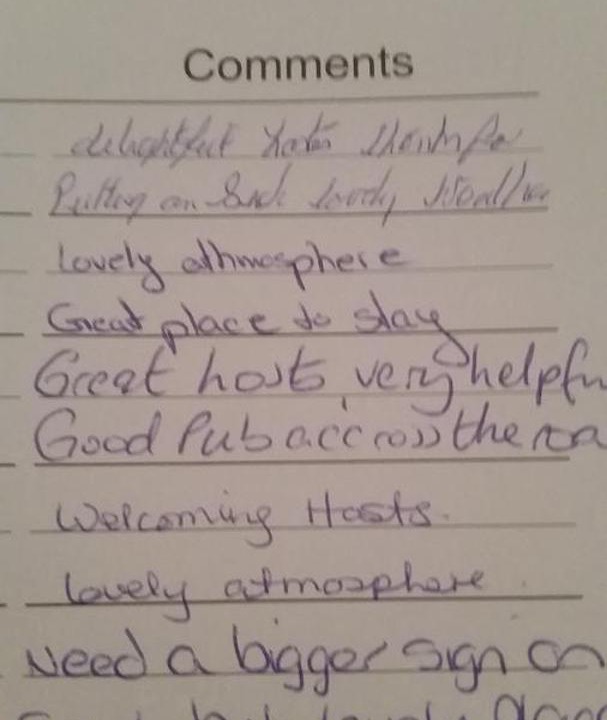 Comments
delightful Hosts thanks for
Putting on Such lovely
Lovely athmosphere
Great place to stay
Great hosts, very helpfu
Good Pub accross the roa
Welcoming Hosts.
lovely atmosphere.
Need a bigger sign on